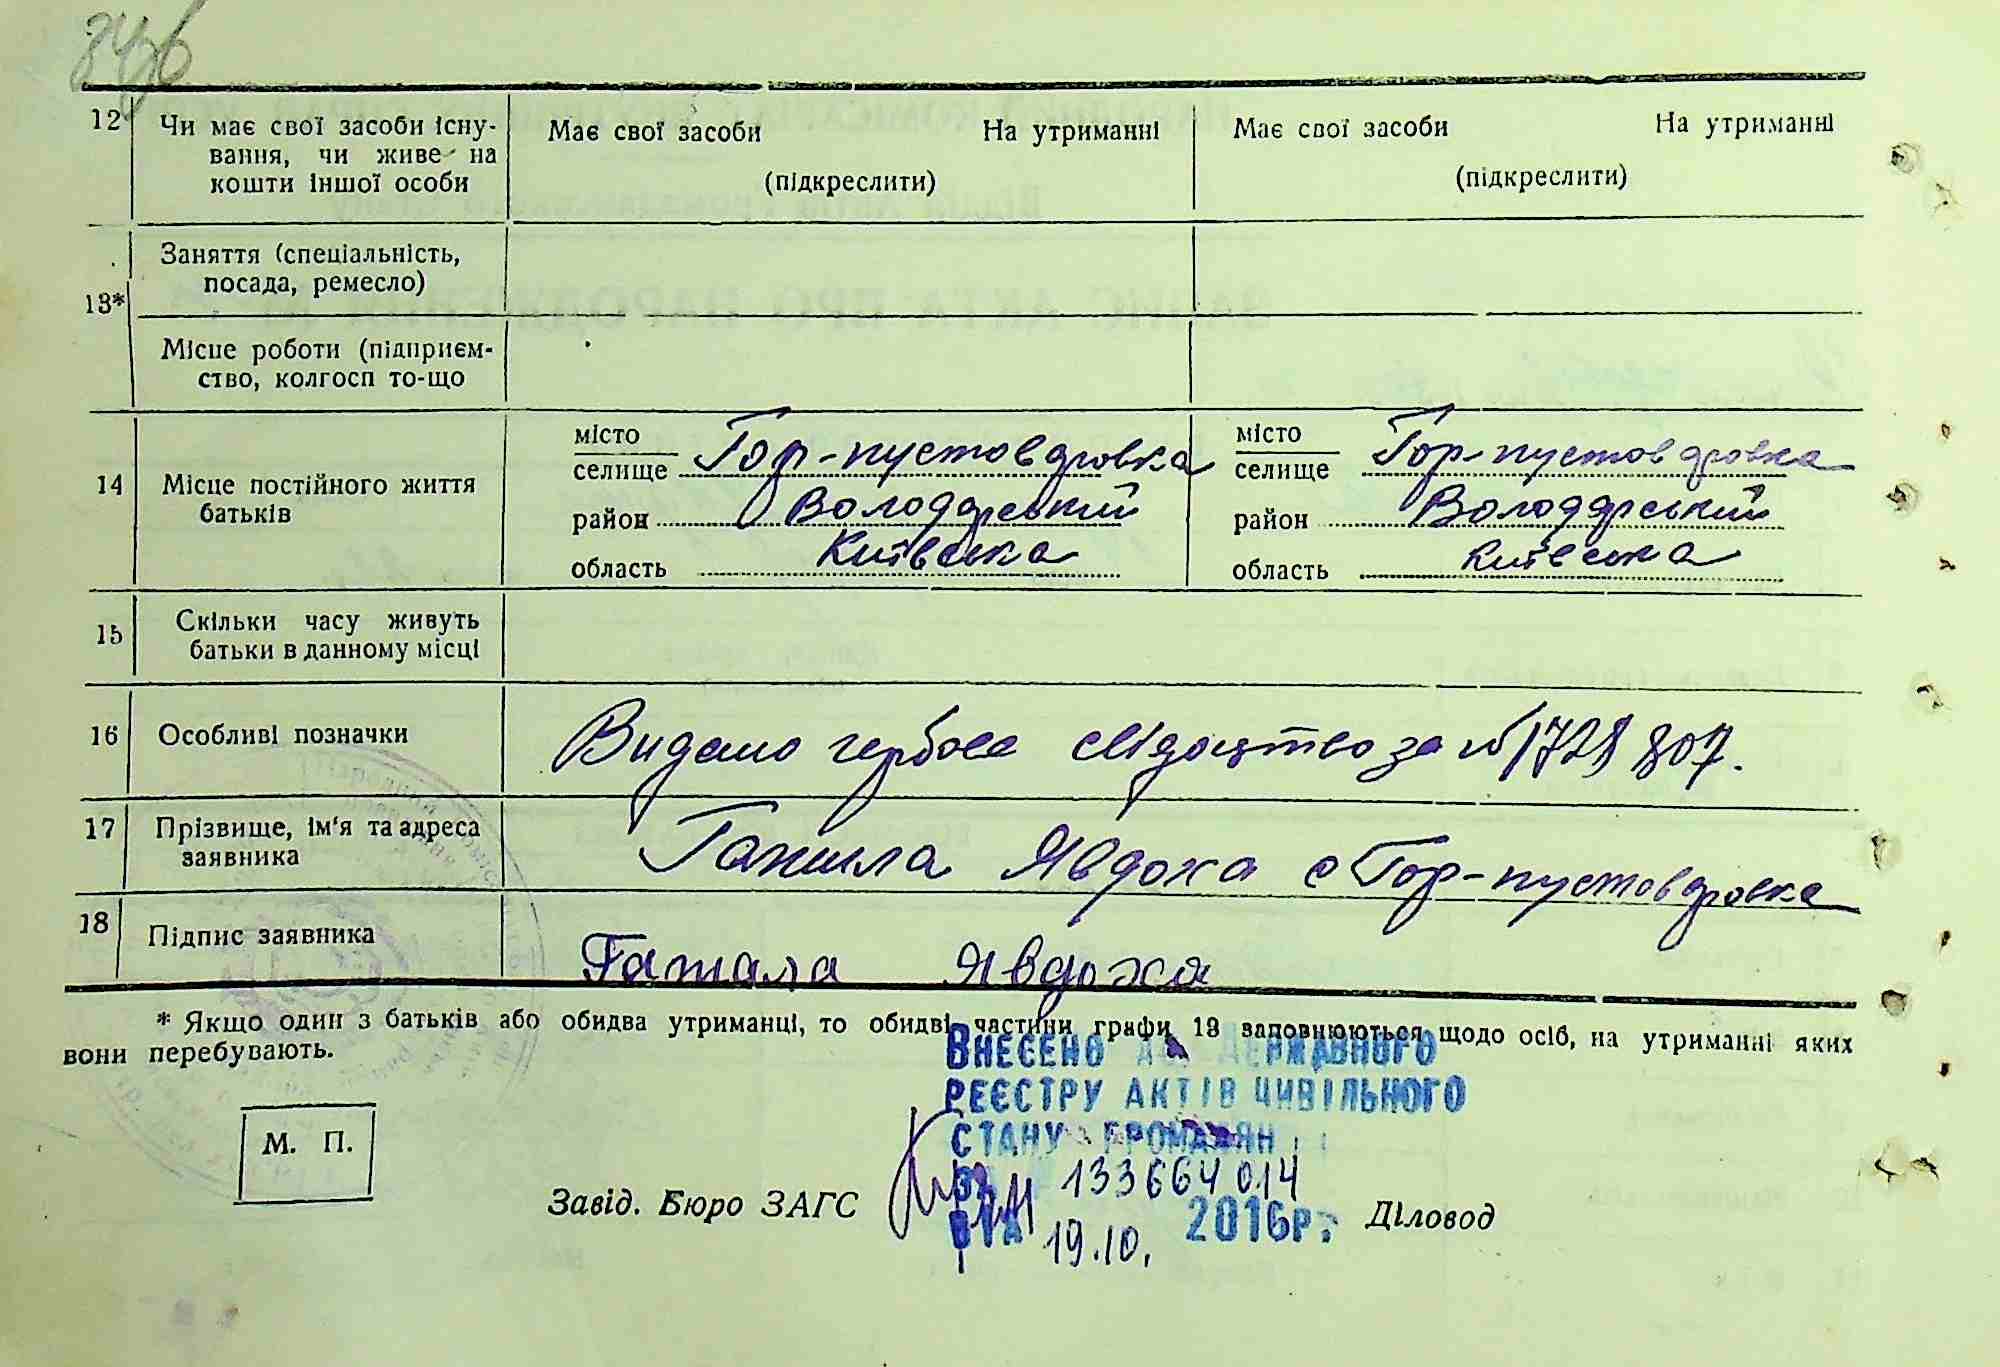 12 Чи має свої засоби існу-
вання, чи живе на
кошти іншої особи
Має свої засоби На утриманні
(підкреслити)
Має свої засоби На утриманні
(підкреслити)
13*
Заняття (спеціальність,
посада, ремесло)
Місце роботи (підприєм-
ство, колгосп то-що
14 Місце постійного життя
батьків
місто
селище Гор-пустовдровка
район Володарський
область Київська
місто
селище Гор-пустовдровка
район Володарський
область Київська
15 Скільки часу живуть
батьки в данному місці
16 Особливі позначки
Видано гербове свідоцтво за № 1728807.
17 Прізвище, ім'я та адреса
заявника
Явдоха с Гор-пустовдровка
18 Підпис заявника
Явдоха
* Якщо один з батьків або обидва утриманці, то обидві частини графи 13 заповнюються щодо осіб, на утриманні яких
вони перебувають.
Внесено до Державного
реєстру актів цивільного
стану громадян
за № 133664014
від 19.10. 2016р.
М. П.
Завід. Бюро ЗАГС
Діловод